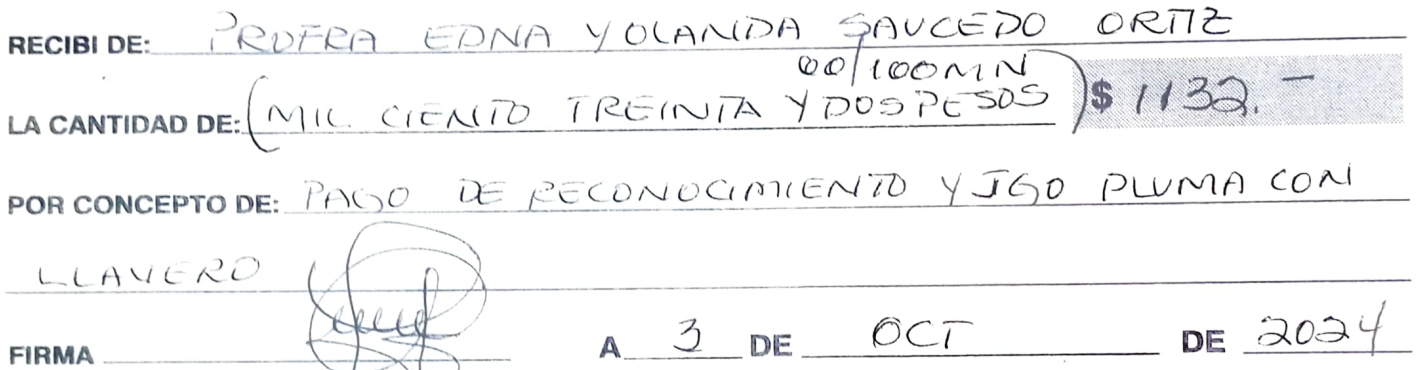 RECIBI DE: PROFRA EDNA YOLANDA SAUCEDO ORTIZ
00/100MN
LA CANTIDAD DE: (MIL CIENTO TREINTA Y DOS PESOS) $ 1132.-
POR CONCEPTO DE: PAGO DE RECONOCIMIENTO Y JGO PLUMA CON
LLAVERO
FIRMA A 3 DE OCT DE 2024